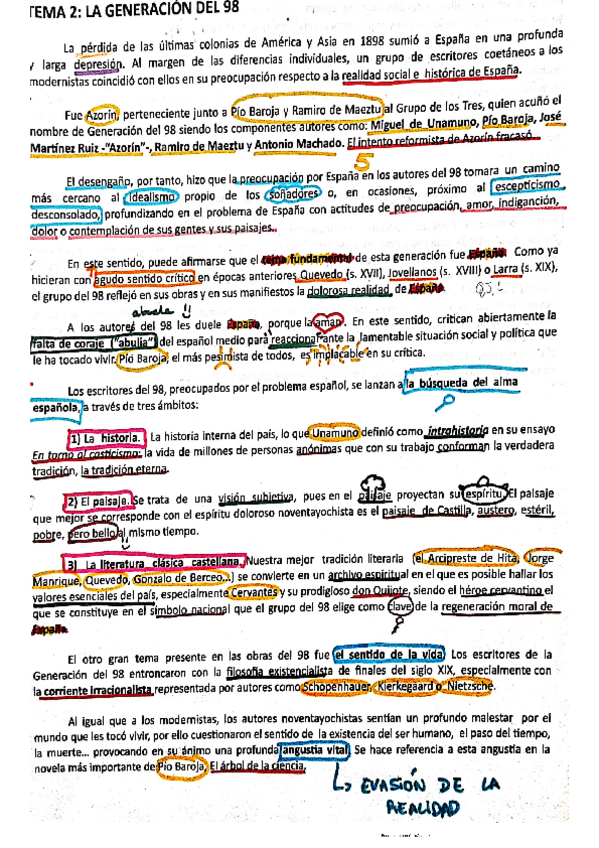 TEMA 2: LA GENERACIÓN DEL 98
La pérdida de las últimas colonias de América y Asia en 1898 sumió a España en una profunda
y larga depresión. Al margen de las diferencias individuales, un grupo de escritores coetáneos a los
modernistas coincidió con ellos en su preocupación respecto a la realidad social e histórica de España.
Fue Azorín, perteneciente junto a Pío Baroja y Ramiro de Maeztu al Grupo de los Tres, quien acuñó el
nombre de Generación del 98 siendo los componentes autores como: Miguel de Unamuno, Pío Baroja, José
Martínez Ruiz -"Azorín"-, Ramiro de Maeztu y Antonio Machado. El intento reformista de Azorín fracasó.
5
El desengaño, por tanto, hizo que la preocupación por España en los autores del 98 tomara un camino
más cercano al idealismo propio de los soñadores o, en ocasiones, próximo al escepticismo
desconsolado, profundizando en el problema de España con actitudes de preocupación, amor, indignación,
dolor o contemplación de sus gentes y sus paisajes.
En este sentido, puede afirmarse que el tema fundamental de esta generación fue España. Como ya
hicieran con agudo sentido crítico en épocas anteriores Quevedo (s. XVII), Jovellanos (s. XVIII) o Larra (s. XIX),
el grupo del 98 reflejó en sus obras y en sus manifiestos la dolorosa realidad de España.
abuela !!
A los autores del 98 les duele España, porque la aman. En este sentido, critican abiertamente la
falta de coraje ("abulia") del español medio para reaccionar ante la lamentable situación social y política que
le ha tocado vivir. Pío Baroja, el más pesimista de todos, es implacable en su crítica.
Los escritores del 98, preocupados por el problema español, se lanzan a la búsqueda del alma
española, a través de tres ámbitos:
1) La historia. La historia interna del país, lo que Unamuno definió como intrahistoria en su ensayo
En torno al casticismo: la vida de millones de personas anónimas que con su trabajo conforman la verdadera
tradición, la tradición eterna.
2) El paisaje. Se trata de una visión subjetiva, pues en el paisaje proyectan su espíritu. El paisaje
que mejor se corresponde con el espíritu doloroso noventayochista es el paisaje de Castilla, austero, estéril,
pobre, pero bello al mismo tiempo.
3) La literatura clásica castellana. Nuestra mejor tradición literaria (el Arcipreste de Hita, Jorge
Manrique, Quevedo, Gonzalo de Berceo...) se convierte en un archivo espiritual en el que es posible hallar los
valores esenciales del país, especialmente Cervantes y su prodigioso don Quijote, siendo el héroe cervantino el
que se constituye en el símbolo nacional que el grupo del 98 elige como clave de la regeneración moral de
España.
El otro gran tema presente en las obras del 98 fue el sentido de la vida. Los escritores de la
Generación del 98 entroncaron con la filosofía existencialista de finales del siglo XIX, especialmente con
la corriente irracionalista representada por autores como Schopenhauer, Kierkegaard o Nietzsche.
Al igual que a los modernistas, los autores noventayochistas sentían un profundo malestar por el
mundo que les tocó vivir, por ello cuestionaron el sentido de la existencia del ser humano, el paso del tiempo,
la muerte... provocando en su ánimo una profunda angustia vital. Se hace referencia a esta angustia en la
novela más importante de Pío Baroja, El árbol de la ciencia.
EVASIÓN DE LA
REALIDAD